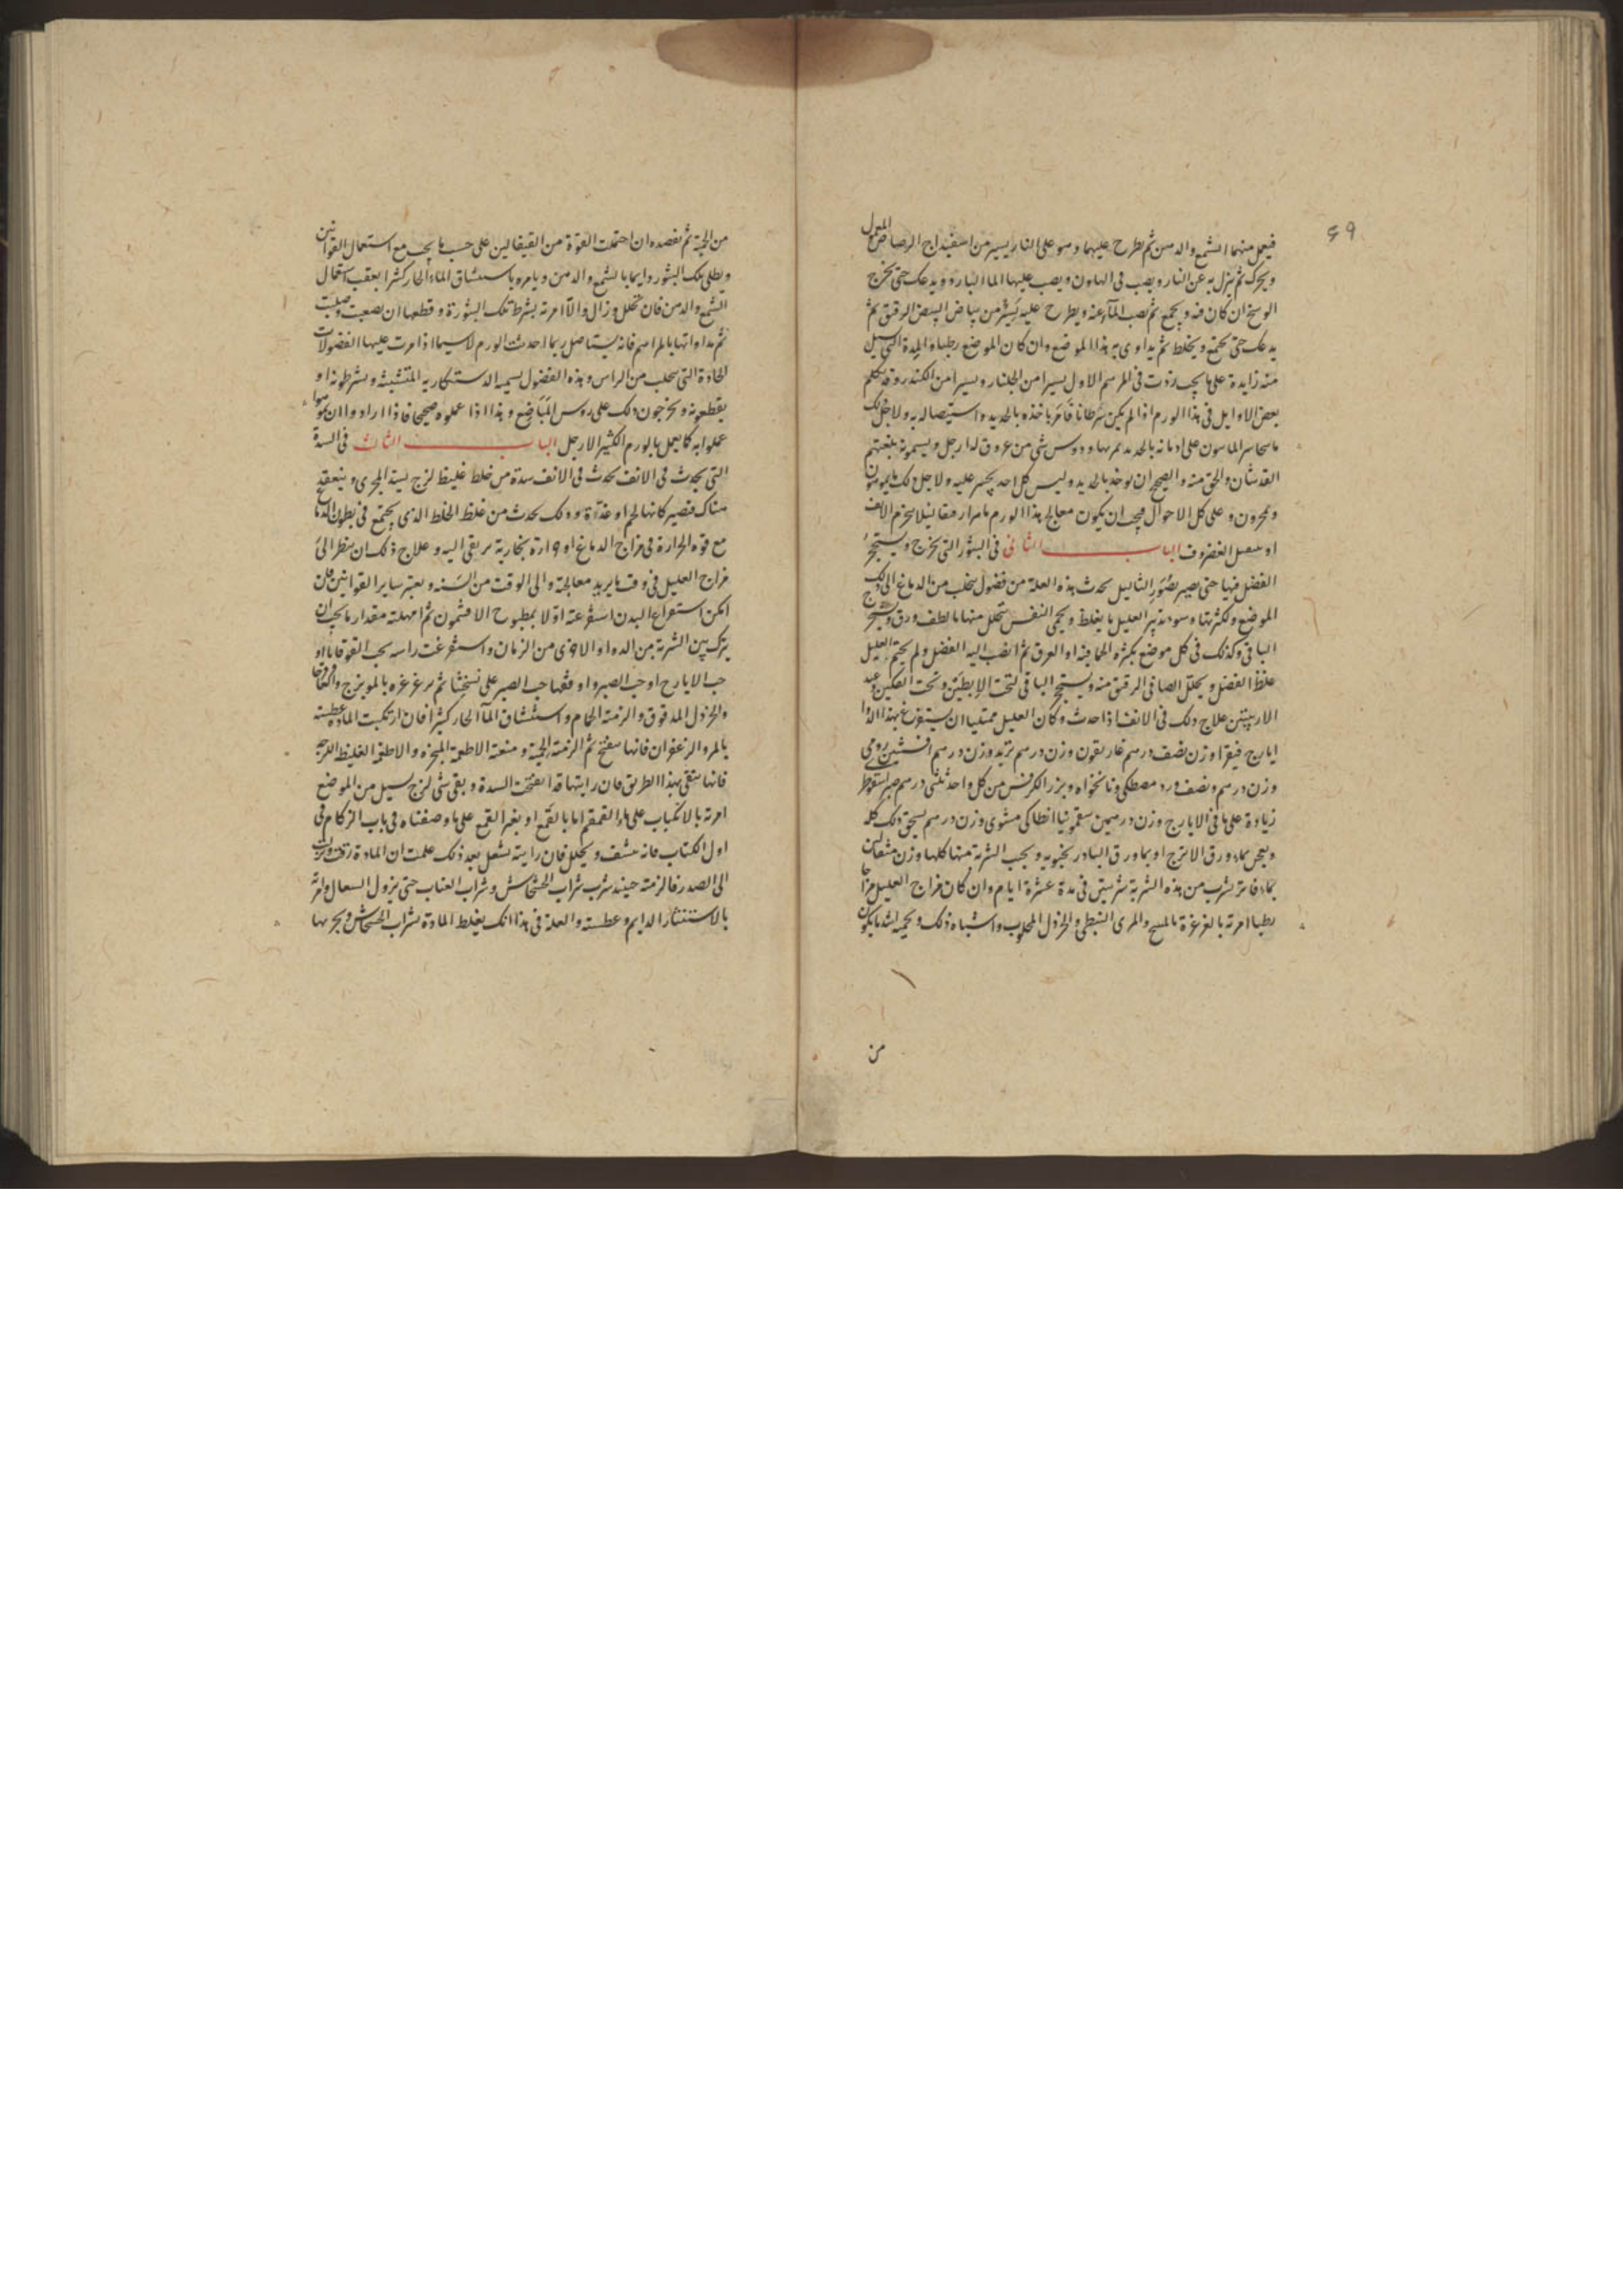 ٤٩
فيعمل منهما الشمع والدهن ثم يطرح عليهما وهو على النار يسير من اسفيداج الرصاص المعمول
ويحرك ثم ينزل به عن النار ويصب فى الهاون ويصب عليها الما البارد ويدعك حتى يخرج
الوسخ ان كان فيه ويجمع ثم يصب المآء عنه ويطرح عليه يسير من بياض البيض الرقيق ثم
يدعك حتى يجتمع ويختلط ثم يداوى به هذا الموضع وان كان الموضع رطبا والمدة التى تسيل
منه زايدة على ما يجب زدت فى المرهم الاول يسيرا من الجلنار ويسيرا من الكندر وقد تكلم
بعض الاوايل فى هذا الورم اذا لم يكن سرطانا فامر باخذه بالحديد واستيصاله به ولاجل ذلك
القدشان والحق منه والصحيح ان يوخذ بالحديد وليس كل احد يجسر عليه ولاجل ذلك
وعلى كل الاحوال فيجب ان يكون معالج هذا الورم
او الغضروف الباب الثانى فى البثور التى تخرج ويستحجر
الفضل فيها حتى يصير بصور الثاليل يحدث هذه العلة من فضول يتحلب من الدماغ الى ذلك
الموضع ولكثرتها وسوء تدبير العليل ما يغلظ ويحمى النفس يتحلل منها ما لطف ورق ويستحجر
الباقى وكذلك فى كل موضع يكثر الحما فيه او العرق ثم انصب اليه الفضل ولم يحتم العليل
غلظ الفضل ويحلل الصافى الرقيق منه ويستحجر الباقى كتحت الابطين وتحت الفكين وعند
الاربيتين علاج ذلك فى الانف اذا حدث وكان العليل ممتليا ان يستفرغ بهذا الدوا
ايارج فيقرا وزن نصف درهم غاريقون وزن درهم تربد وزن درهم افسنتين رومى
وزن درهم ونصف ورد مصطكى ونانخواه وبزر الكرفس من كل واحد ثلثى درهم صبر اسقوطرى
زيادة على ما فى الايارج وزن درهمين سقمونيا انطاكى مشوى وزن درهم يسحق ذلك كله
ويعجن بماء ورق الاترج او بماء ورق البادرنجبويه ويحبب الشربة منها كلها وزن مثقالين
بماء فاتر يشرب من هذه الشربة شربتين فى مدة عشرة ايام وان كان مزاج العليل مزاجا
رطبا امرته بالغرغرة بالميبختج والمرى النبطى والخردل المحلوب واشباه ذلك ويحميه اشد ما يكون
من
من الحمية ثم يفصده ان احتملت القوة من القيفالين على حسب ما يجب مع استعمال القوانين
ويطلى تلك البثور دايما بالشمع والدهن ويامره باستنشاق الماء الحار كثيرا بعقب استعمال
الشمع والدهن فان تحلل وزال والا امرته بشرط تلك البثورة وقطعها ان صعبت وصلبت
ثم مداواتها بالمراهم فانه يستاصل ربما احدث الورم لاسيما اذا مرت عليها الفضولات
الحادة التى تتحلب من الراس وهذه الفضول
يقطعونه ويخرجون ذلك على روس المباضع وهذا اذا عملوه صحيحا فاذا ارادوا ان
عملوا به كما يعمل بالورم الكثير الارجل الباب الثالث فى السدة
التى يحدث فى الانف تحدث فى الانف سدة من خلط غليظ لزج يسد المجرى وينعقد
هناك فتصير كانها لحم او غدة وذلك يحدث من غلظ الخلط الذى يجتمع فى بطون الدماغ
مع قوة الحرارة فى مزاج الدماغ او حرارة بخارية يرتقى اليه وعلاج ذلك ان ينظر الى
مزاج العليل فى وقت ما يريد معالجته والى الوقت من السنه ويعتبر ساير القوانين فان
امكن استفراغ البدن استفرغته اولا بمطبوخ الافتيمون ثم امهلته مقدار ما يجب ان
يترك بين الشربة من الدوا والاخرى من الزمان واستفرغت راسه بحب القوقايا او
حب الايارج او حب الصبر وافقها حب الصبر على نسختنا ثم يغرغره بالمويزج والعاقرقرحا
والخردل المدقوق والزمته الحمام واستنشاق المآ الحار كثيرا فان ارتكبت المادة عطسته
بالمر والزعفران فانها تنفتح ثم الزمته الحمية ومنعته الاطعمة المبخره والاطعمة الغليظة اللزجة
فانها تنقى بهذا الطريق فان رايتها قد انفتحت السدة وبقى شى لزج يسيل من الموضع
امرته بالانكباب على ماء القمقم اما بالقمع او بغير القمع على ما وصفناه فى باب الزكام فى
اول الكتاب فانه ينشف ويحلل فان رايته يسعل بعد ذلك علمت ان المادة رقت ونزلت
الى الصدر فالزمته حينيذ شرب شراب الخشخاش وشراب العناب حتى يزول السعال وامرته
بالاستنثار الدايم وعطسته والعلة فى هذا انك يغلظ المادة بشراب الخشخاش ويجرها